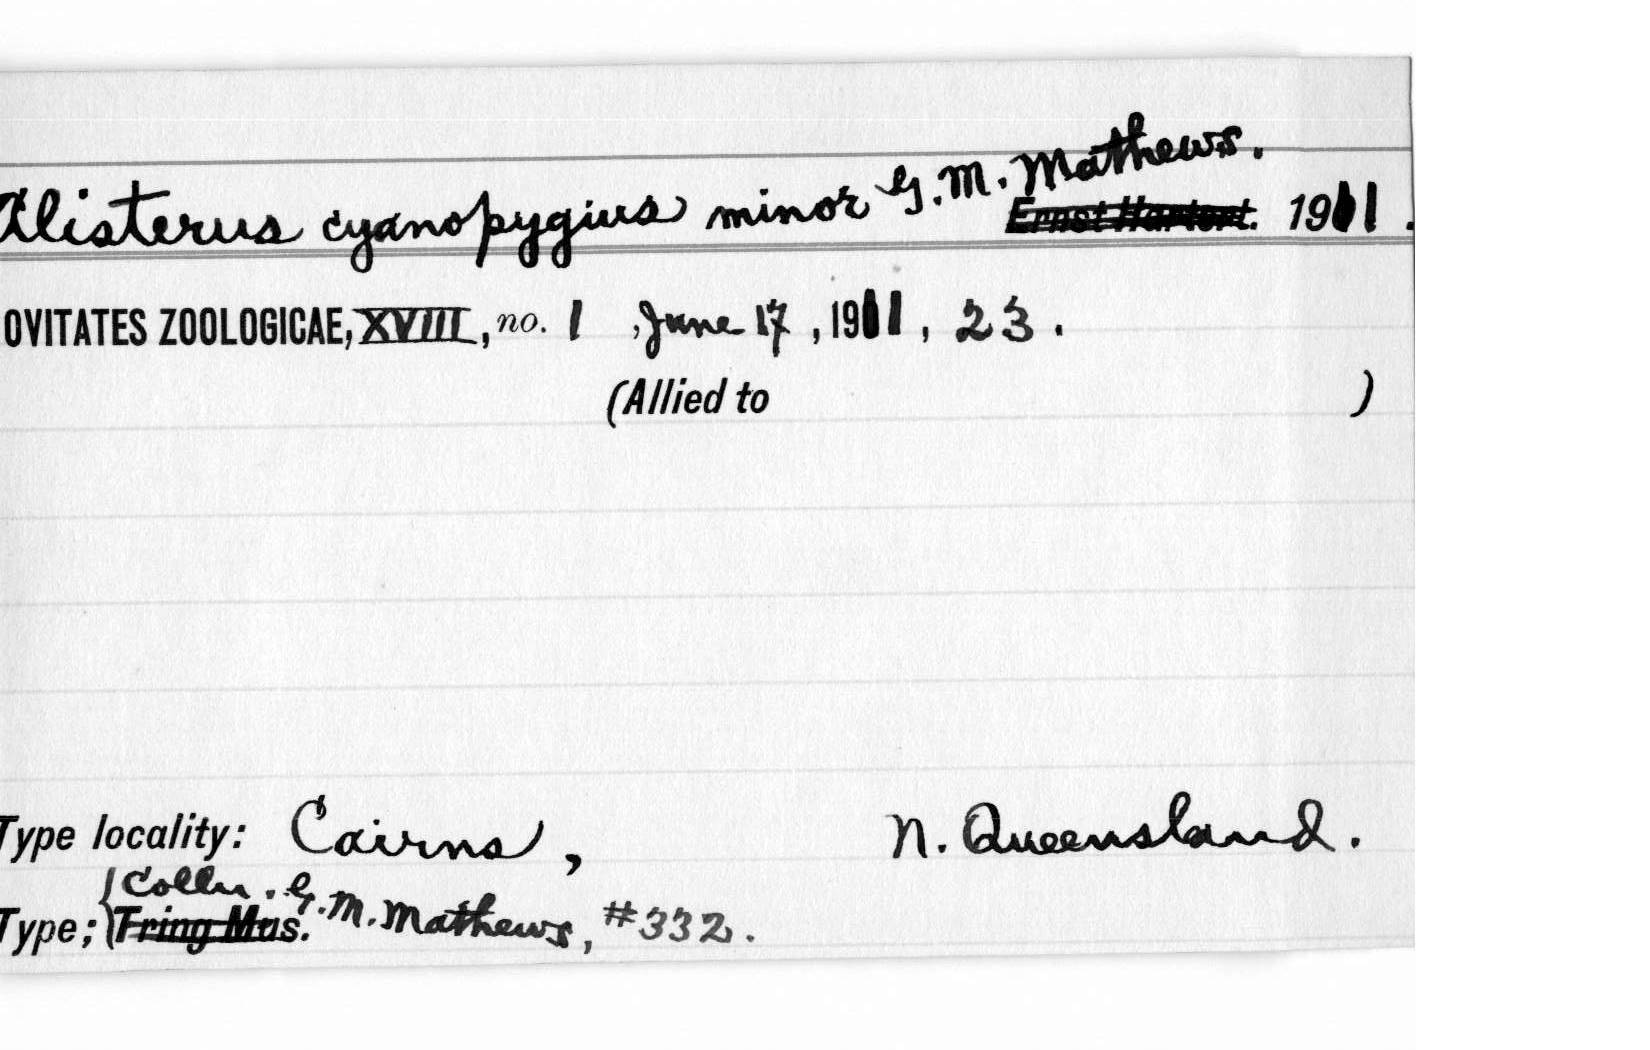 Alisterus cyanopygius minor G.M. Mathews.
Ernst Hartert. 1911.
OVITATES ZOOLOGICAE, XVIII, no. 1, June 17, 1911, 23.
(Allied to )
Type locality: Cairns, N. Queensland.
Colln. G.M. Mathews, #332.
Type; Tring Mus.